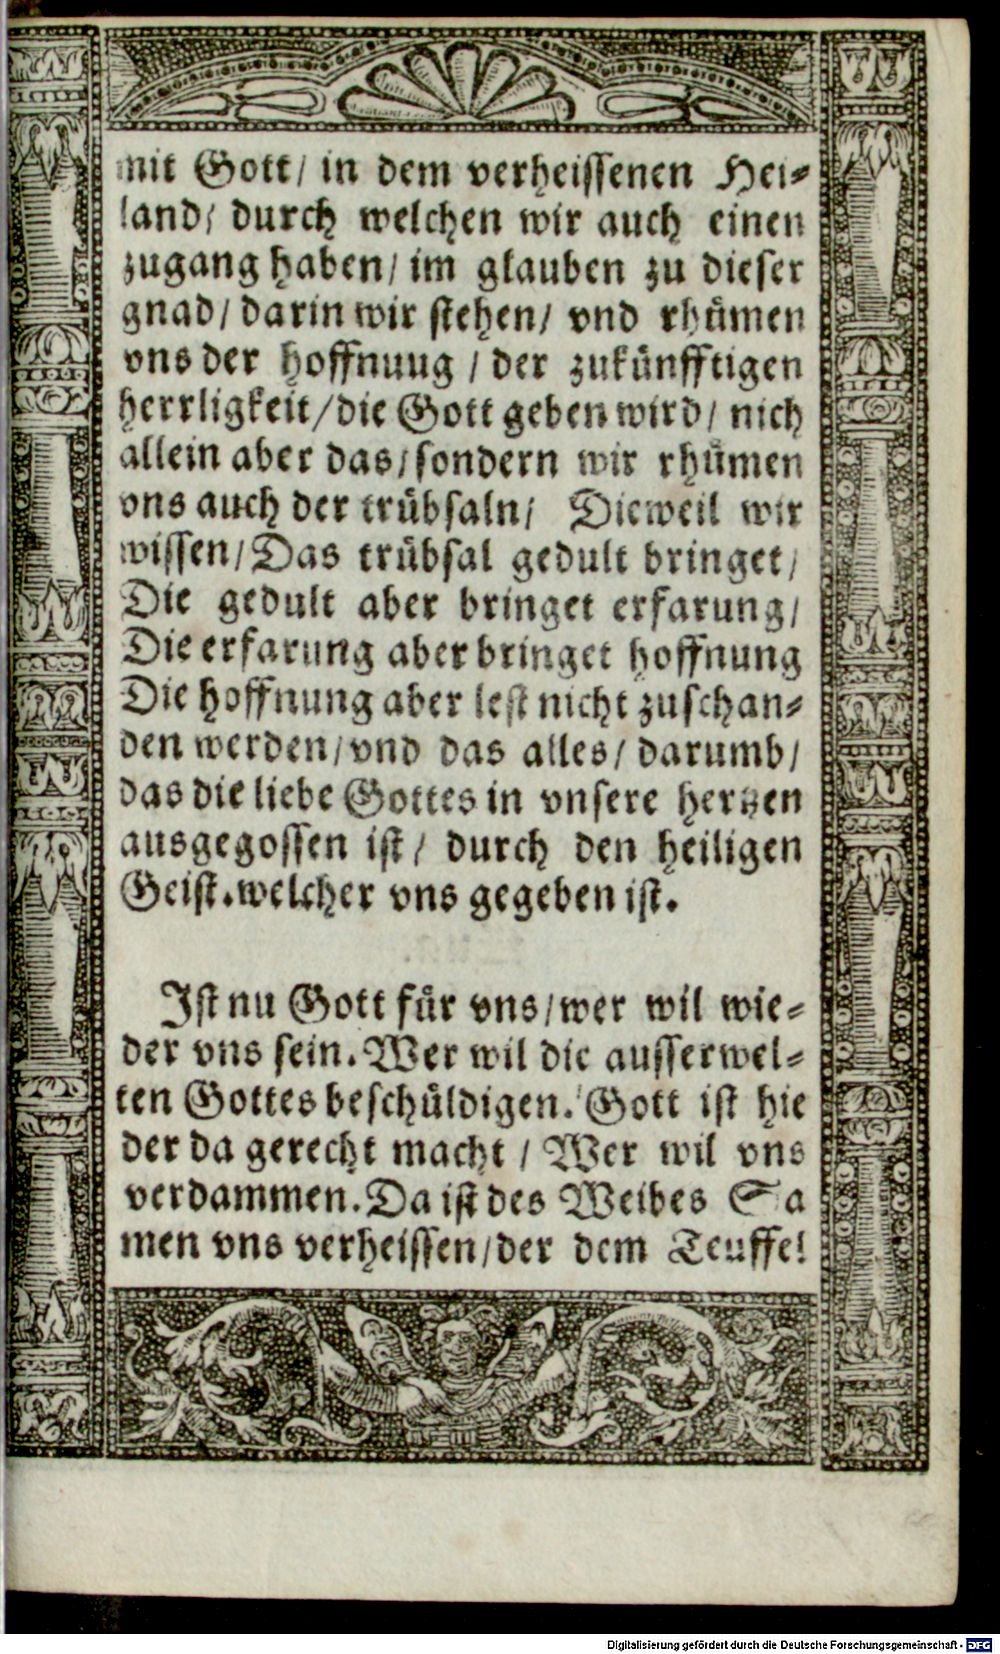 mit Gott/ in dem verheissenen Hei⸗
land/ durch welchen wir auch einen
zugang haben/ im glauben zu dieser
gnad/ darin wir stehen/ vnd rhümen
vns der hoffnuug / der zukünfftigen
herrligkeit/die Gott geben wird/ nich
allein aber das/sondern wir rhümen
vns auch der trübsaln/ Dieweil wir
wissen/Das trübsal gedult bringet/
Die gedult aber bringet erfarung/
Die erfarung aber bringet hoffnung
Die hoffnung aber lest nicht zuschan⸗
den werden/vnd das alles/ darumb/
das die liebe Gottes in vnsere hertzen
ausgegossen ist/ durch den heiligen
Geist.welcher vns gegeben ist.
Ist nu Gott für vns/wer wil wie⸗
der vns sein. Wer wil die ausserwel⸗
ten Gottes beschüldigen. Gott ist hie
der da gerecht macht / Wer wil vns
verdammen. Da ist des Weibes Sa
men vns verheissen/der dem Teuffel
Digitalisierung gefördert durch die Deutsche Forschungsgemeinschaft - DFG